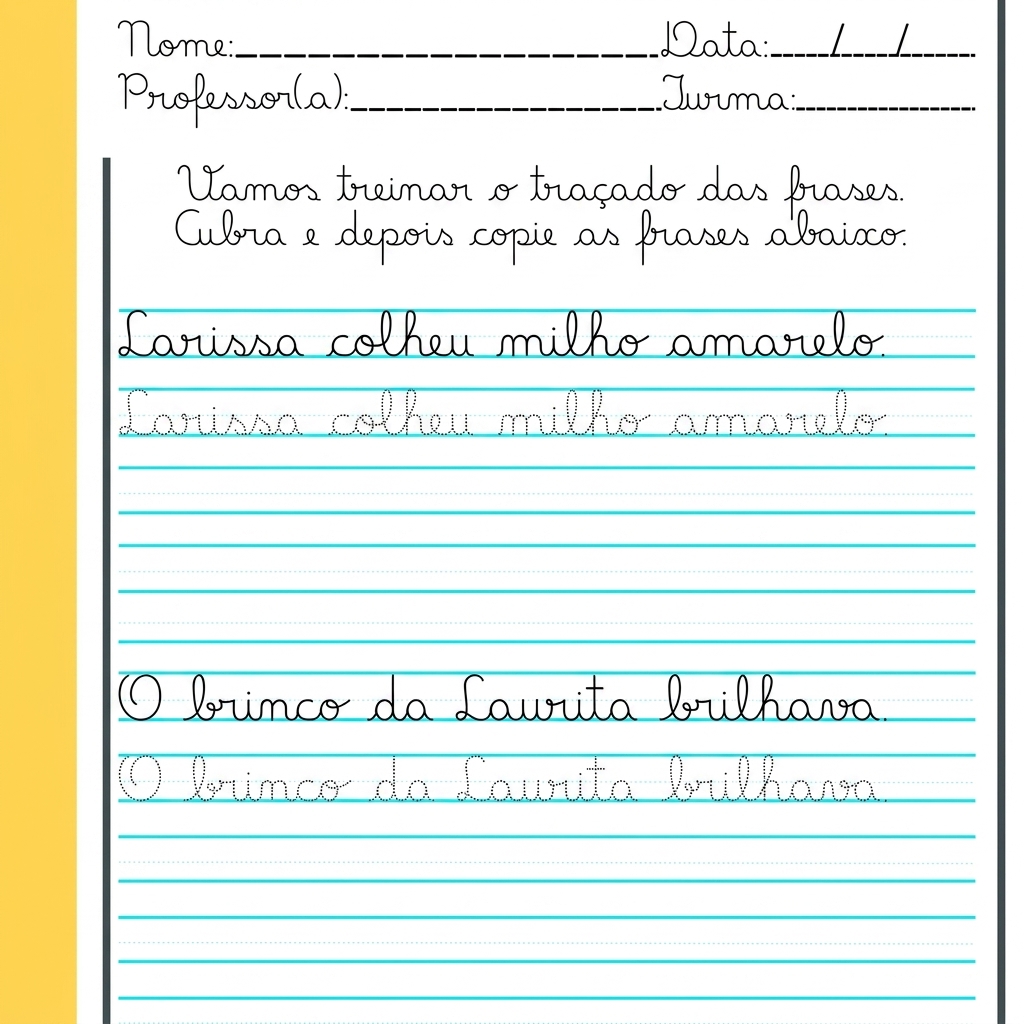 Nome:__________________Data:____/____/____
Professor(a):_____________Turma:__________
Vamos treinar o traçado das frases.
Cubra e depois copie as frases abaixo.
Larissa colheu milho amarelo.
Larissa colheu milho amarelo.
O brinco da Laurita brilhava.
O brinco da Laurita brilhava.